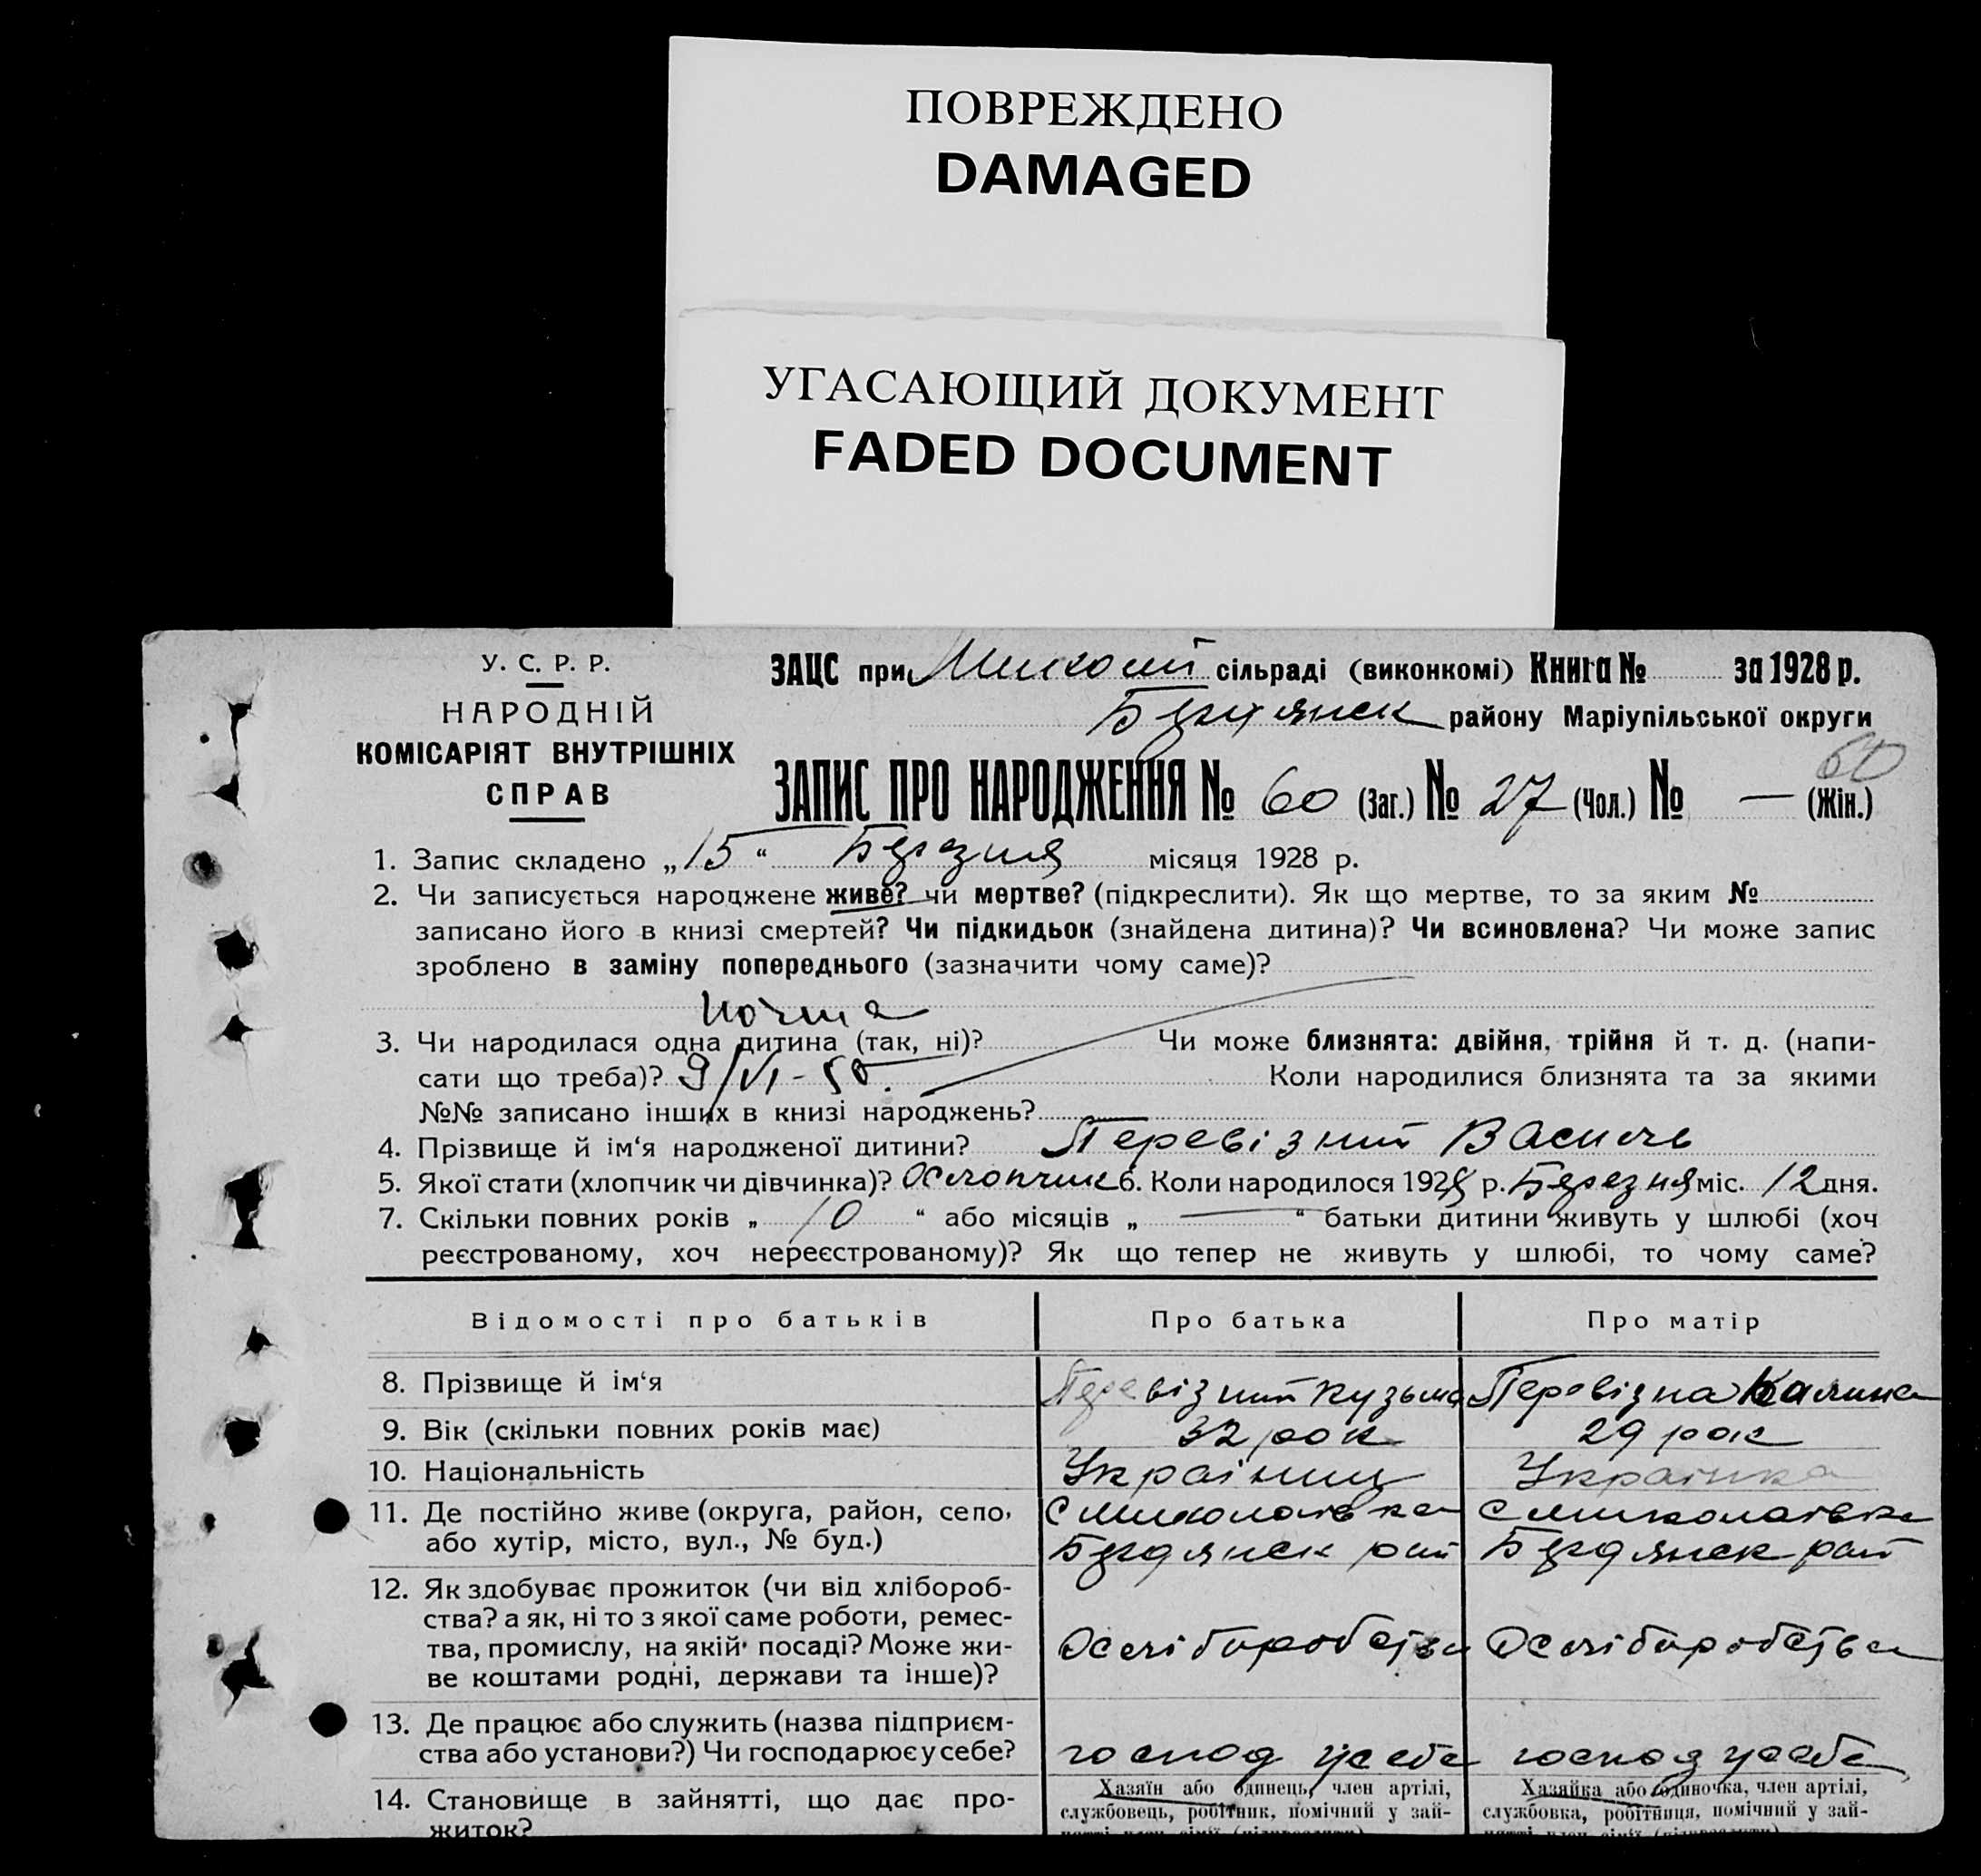 ПОВРЕЖДЕНО
DAMAGED
УГАСАЮЩИЙ ДОКУМЕНТ
FADED DOCUMENT
У. С. Р. Р.
НАРОДНІЙ
КОМІСАРІЯТ ВНУТРІШНІХ
СПРАВ
ЗАЦС при сільраді (виконкомі) Книга № за 1928 р.
Бердянск району Маріупільської округи
60
ЗАПИС ПРО НАРОДЖЕННЯ № 60 (Заг.) № 27 (Чол.) № — (Жін.)
1. Запис складено „15“ Березня місяця 1928 р.
2. Чи записується народжене живе? чи мертве? (підкреслити). Як що мертве, то за яким №
записано його в книзі смертей? Чи підкидьок (знайдена дитина)? Чи всиновлена? Чи може запис
зроблено в заміну попереднього (зазначити чому саме)?
3. Чи народилася одна дитина (так, ні)? Чи може близнята: двійня, трійня й т. д. (напи-
сати що треба)? 9/VI-50. Коли народилися близнята та за якими
№№ записано інших в книзі народжень?
4. Прізвище й ім‘я народженої дитини? Перевізний Василь
5. Якої стати (хлопчик чи дівчинка)? Хлопчик 6. Коли народилося 1928 р. Березня міс. 12 дня.
7. Скільки повних років „ 10 “ або місяців „ — “ батьки дитини живуть у шлюбі (хоч
реєстрованому, хоч нереєстрованому)? Як що тепер не живуть у шлюбі, то чому саме?
Відомості про батьків Про батька Про матір
8. Прізвище й ім‘я Перевізний Кузьма Перевізна Калина
9. Вік (скільки повних років має) 32 рок 29 рок
10. Національність Украіниц Украінка
11. Де постійно живе (округа, район, село, с Миколаівка с Миколаівка
або хутір, місто, вул., № буд.) Бердянск рай Бердянск рай
12. Як здобуває прожиток (чи від хлібороб-
ства? а як, ні то з якої саме роботи, ремес-
тва, промислу, на якій посаді? Може жи- Хліборобства Хліборобства
ве коштами родні, держави та інше)?
13. Де працює або служить (назва підприєм-
ства або установи?) Чи господарює у себе? господ у себе господ у себе
14. Становище в зайнятті, що дає про- Хазяїн або одинець, член артілі, Хазяйка або одиночка, член артілі,
житок? службовець, робітник, помічний у зай- службовка, робітниця, помічний у зай-